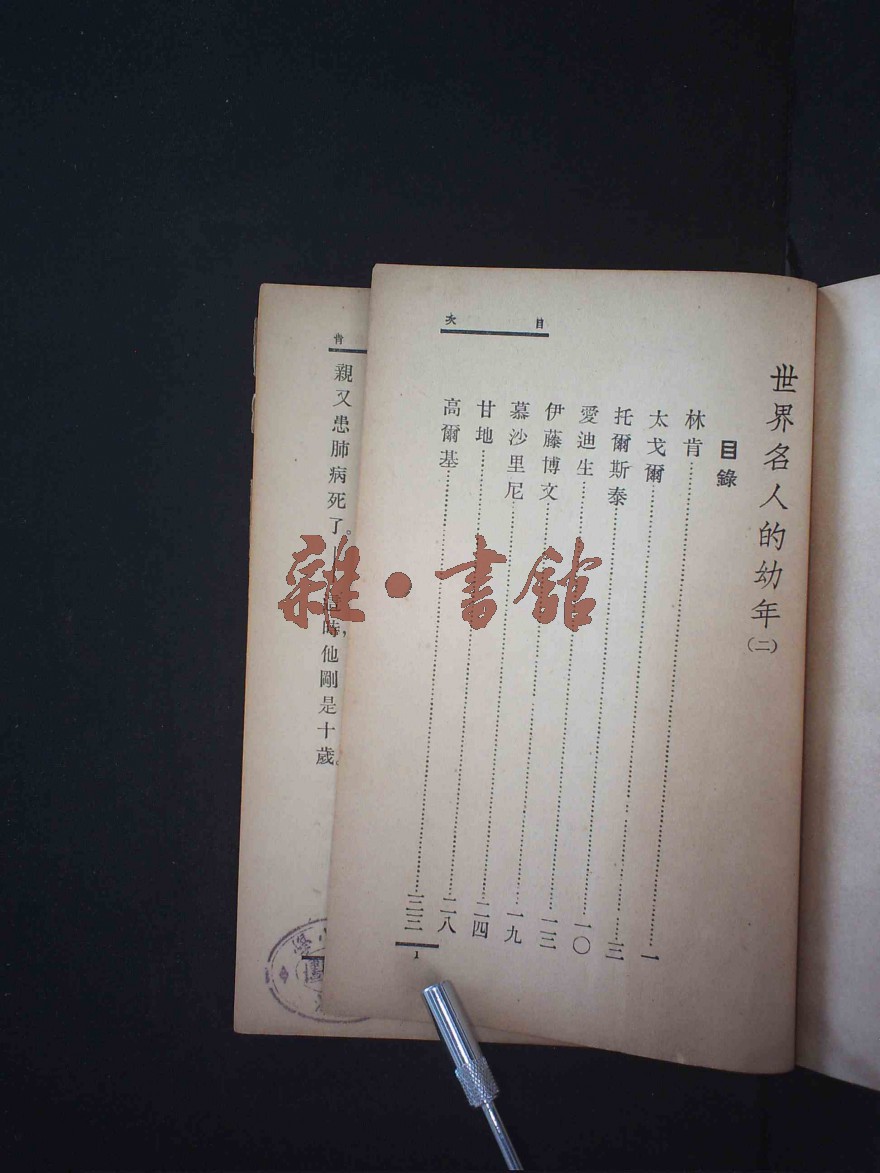 目次
世界名人的幼年(二)
目錄
林肯……一
太戈爾……三
托爾斯泰……一〇
愛迪生……一三
伊藤博文……一九
慕沙里尼……二四
甘地……二八
高爾基……三三
1
肯
親又患肺病死了。這時,他剛是十歲。
雜·書館